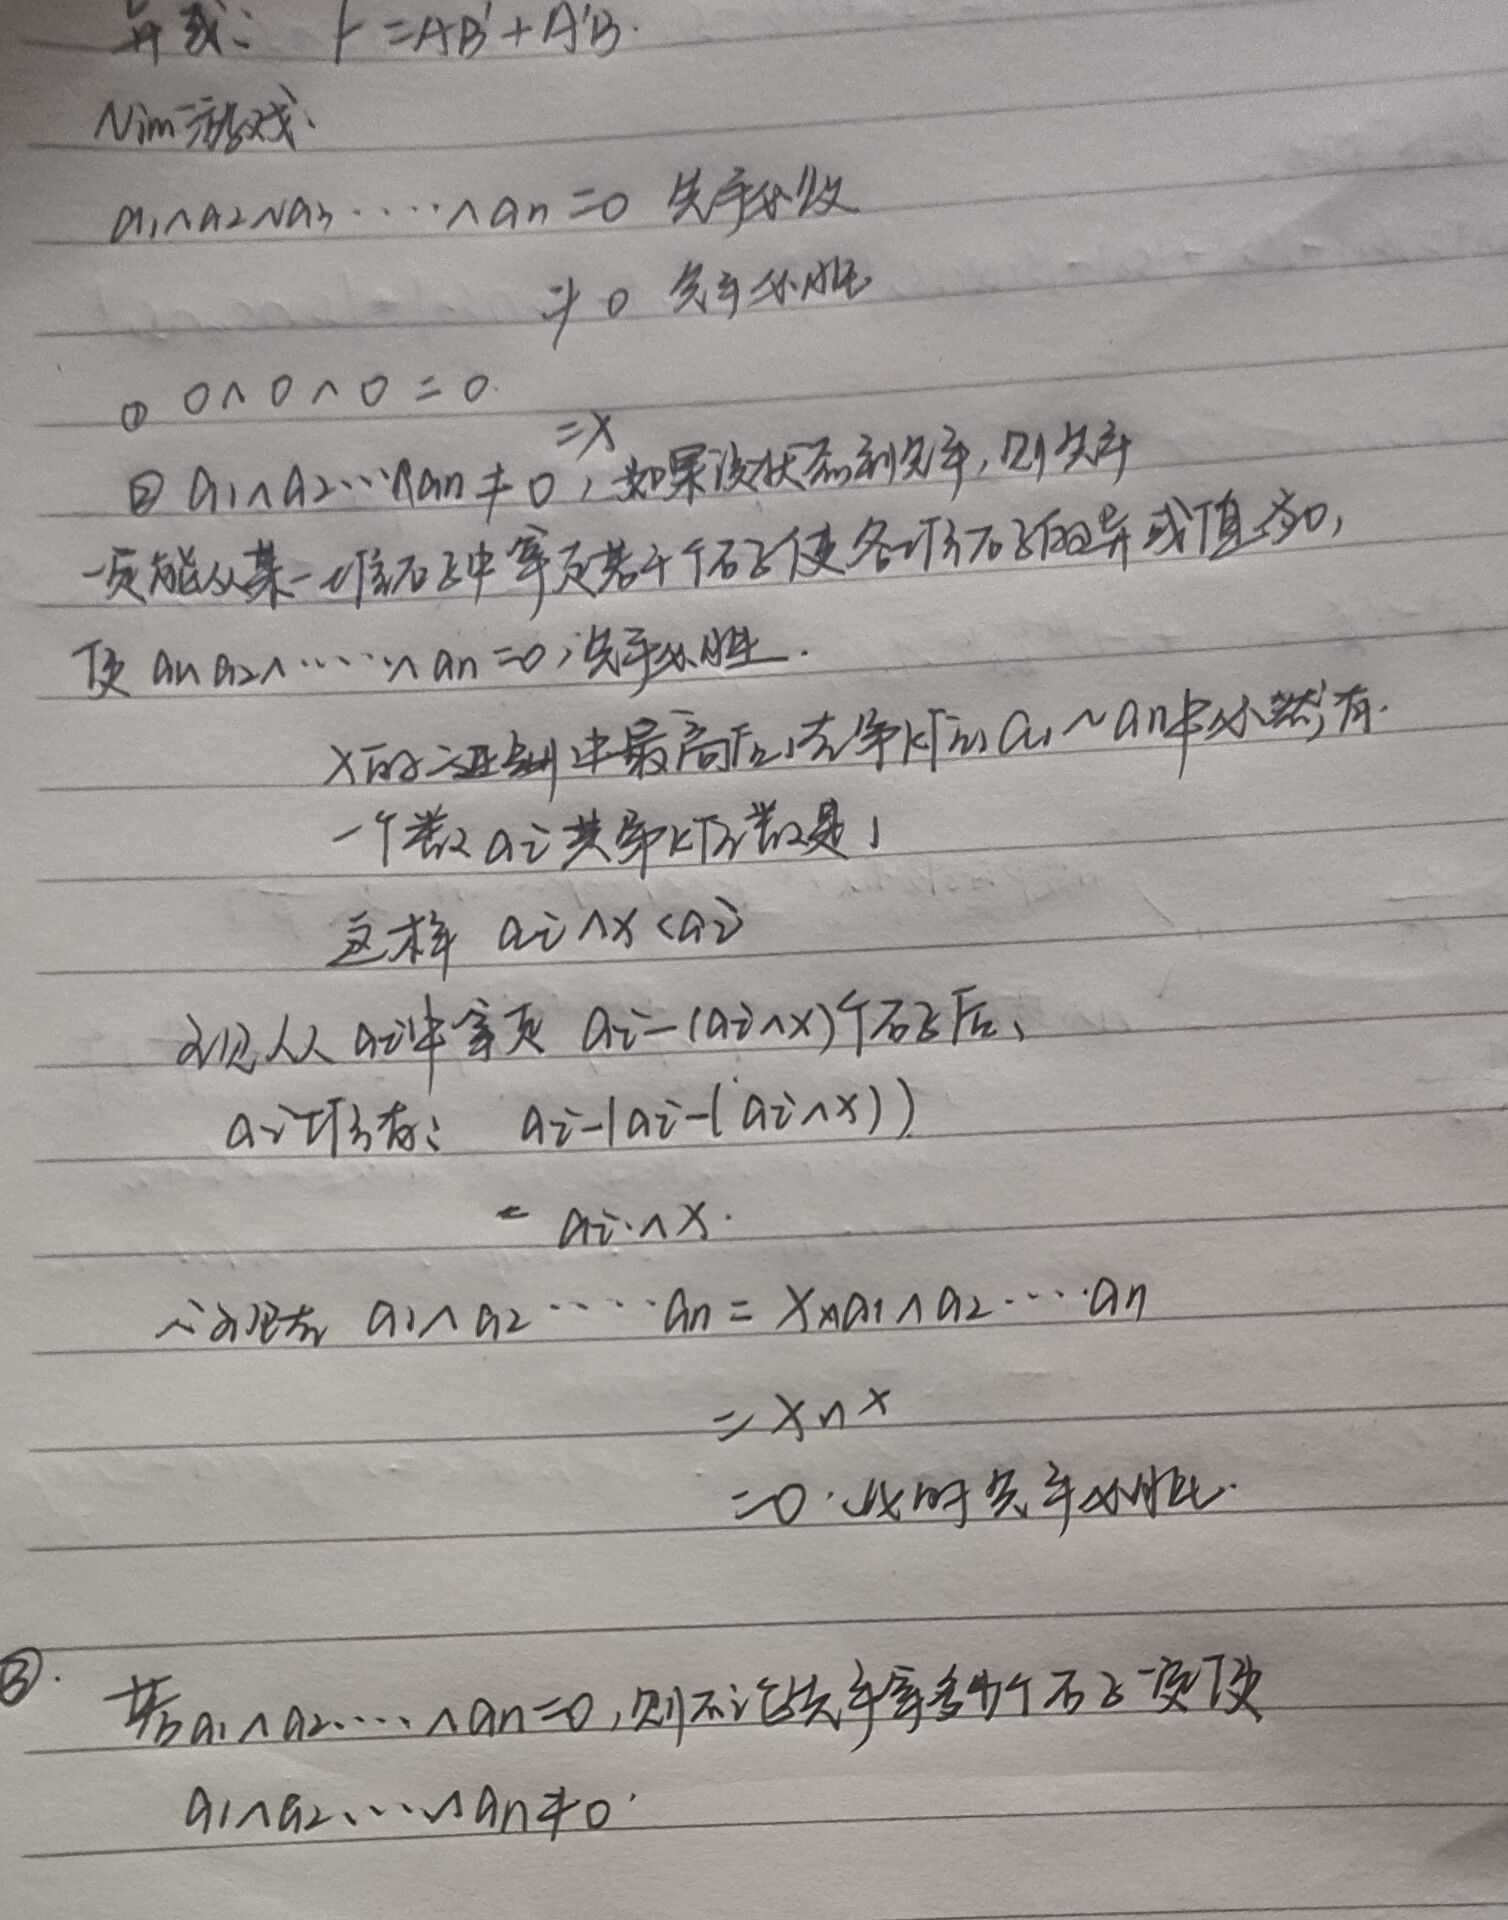 异或: F=AB'+A'B.
Nim游戏:
a1∧a2∧a3·····∧an=0 先手必败
≠0 先手必胜
① 0∧0∧0=0.
=x
② a1∧a2···∧an≠0,如果该状态到先手,则先手
一定能从某一堆石子中拿走若干个石子使各堆石子的异或值为0,
使 a1∧a2∧·····∧an=0,先手必胜.
x的二进制中最高位在第k位,a1~an中必然有.
一个数ai其第k位数是1
这样 ai∧x<ai
那么从ai中拿走 ai-(ai∧x)个石子后,
ai堆有: ai-(ai-(ai∧x))
= ai∧x.
∴现在 a1∧a2·····an=x∧a1∧a2····an
=x∧x
=0.此时先手必胜.
③. 若a1∧a2····∧an=0,则不论先手拿多少个石子一定使
a1∧a2····∧an≠0.